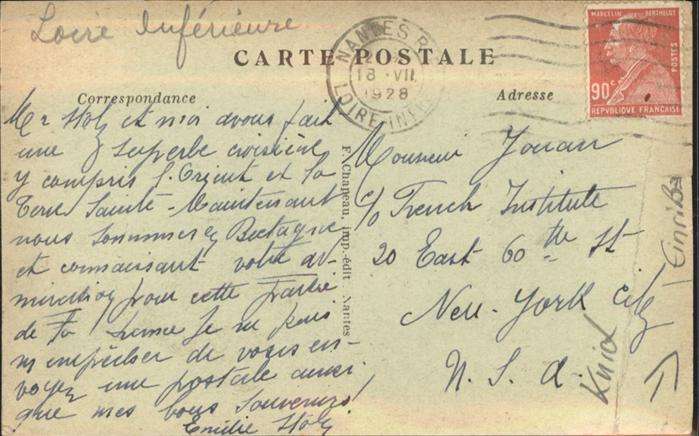 Loire Inférieure
CARTE POSTALE
NANTES
18 - VII
1928
LOIRE-INF
MARCELIN BERTHELOT
POSTES
90c
REPUBLIQUE FRANÇAISE
Correspondance
Adresse
Mr Stoly et moi avons fait
une superbe croisière
y compris l'Orient et la
Terre Sainte - Maintenant
nous sommes en Bretagne
et connaissant votre ad-
miration pour cette partie
de la France je ne puis
m'empêcher de vous en-
voyer une postale ainsi
que mes bons souvenirs!
Emilie Stoly
F. Chapeau, imp.-édit., Nantes
Monsieur Jouan
c/o French Institute
20 East 60th St
New-York City
U. S. A.